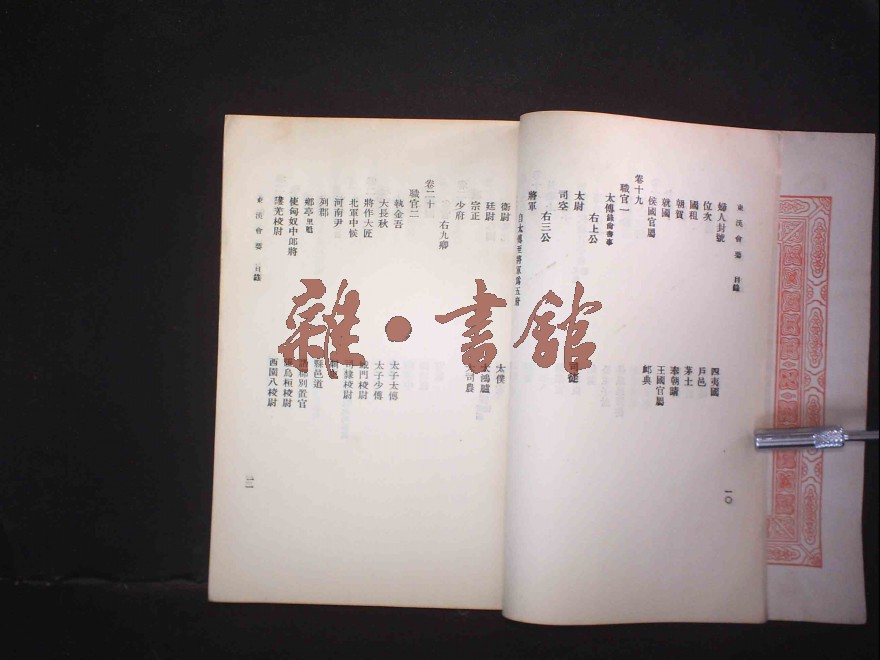 東漢會要 目錄
婦人封號 四夷國
位次 戶邑
國租 茅土
朝賀 奉朝請
就國 王國官屬
侯國官屬 卹典
卷十九
職官一
太傅錄尚書事
右上公
太尉 司徒
司空
右三公
將軍
自太傅至將軍為五府
一〇
衛尉 太僕
廷尉 大鴻臚
宗正 大司農
少府
右九卿
卷二十
職官二
執金吾 太子太傅
大長秋 太子少傅
將作大匠 城門校尉
北軍中候 司隸校尉
河南尹
列郡 縣邑道
鄉亭里魁 邊郡別置官
使匈奴中郎將 護烏桓校尉
護羌校尉 西園八校尉
東漢會要 目錄
一一
雜·書館